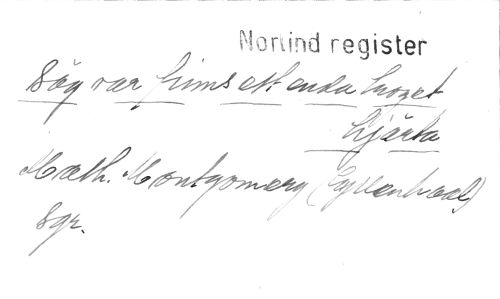 Norlind register
Säg var finns ett enda troget
hjärta
Math. Montgomery (Gyllenhaal)
Sgr.